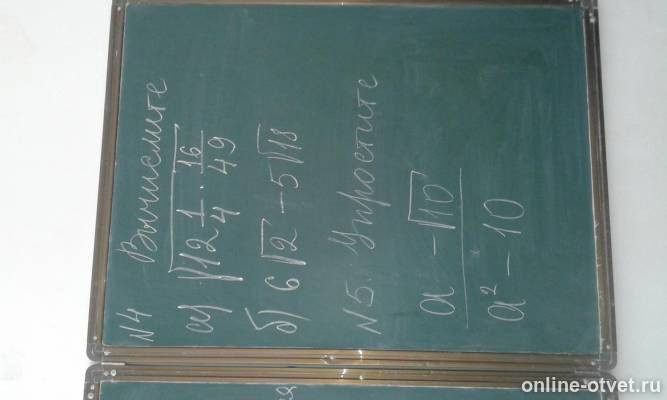 №4 Вычислите
а) √12 1/4 · 16/49
б) 6√2 - 5√18
№5. Упростите
a - √10
a² - 10
online-otvet.ru